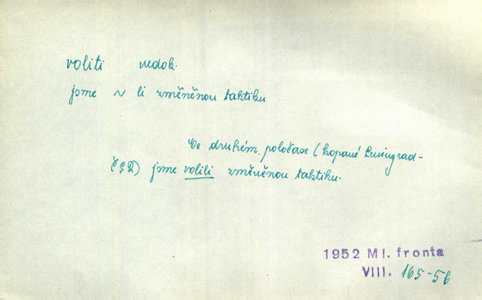 voliti nedok.
jsme ~ li změněnou taktiku
Ve druhém poločase (kopané Leningrad-
ČSR) jsme volili změněnou taktiku.
1952 Ml. fronta
VIII. 165-5b